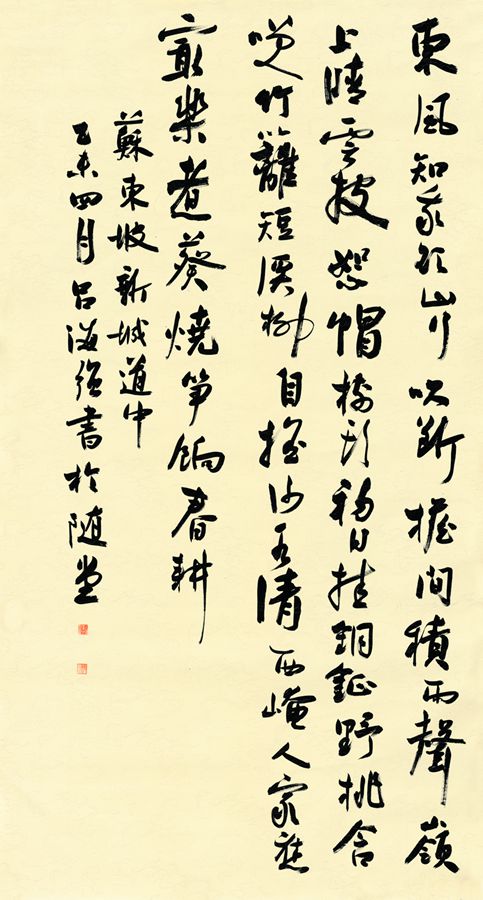 東風知我欲山行吹斷檐間積雨聲嶺
上晴雲披絮帽樹頭初日挂銅鉦野桃含
咲竹籬短溪柳自搖沙水清西崦人家應
最樂煮葵燒笋餉春耕
蘇東坡新城道中
乙未四月吕海强書於随堂